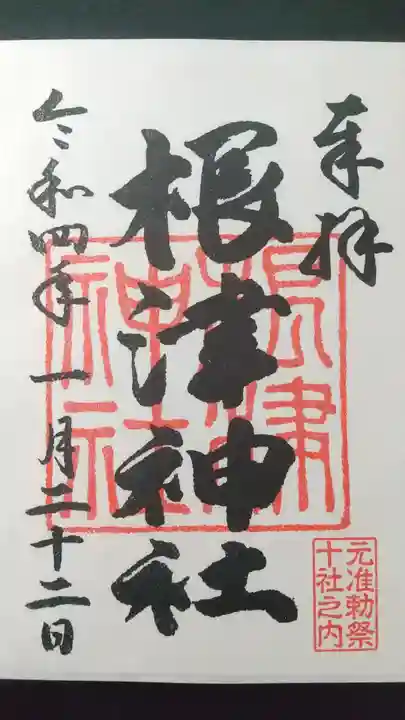 奉拝
根津神社
令和四年 一月二十二日
根津
神社
元准勅祭
十社之内